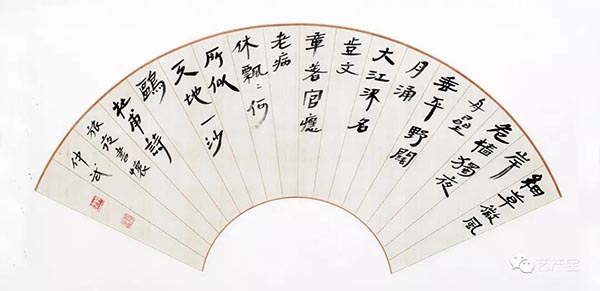 細草微風
岸
危檣獨夜
舟曐
垂平野闊
月涌
大江流名
豈文
章著官應
老病
休飄〻何
所似
天地一沙
鷗
杜甫詩
旅夜書懷
仲武
艺产宝